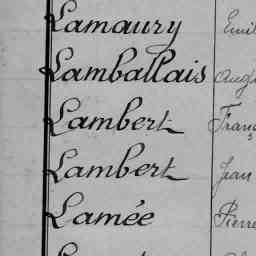 Lamaury Emil
Lamballais Augu
Lambert Franç
Lambert Jean
Lamée Pierre